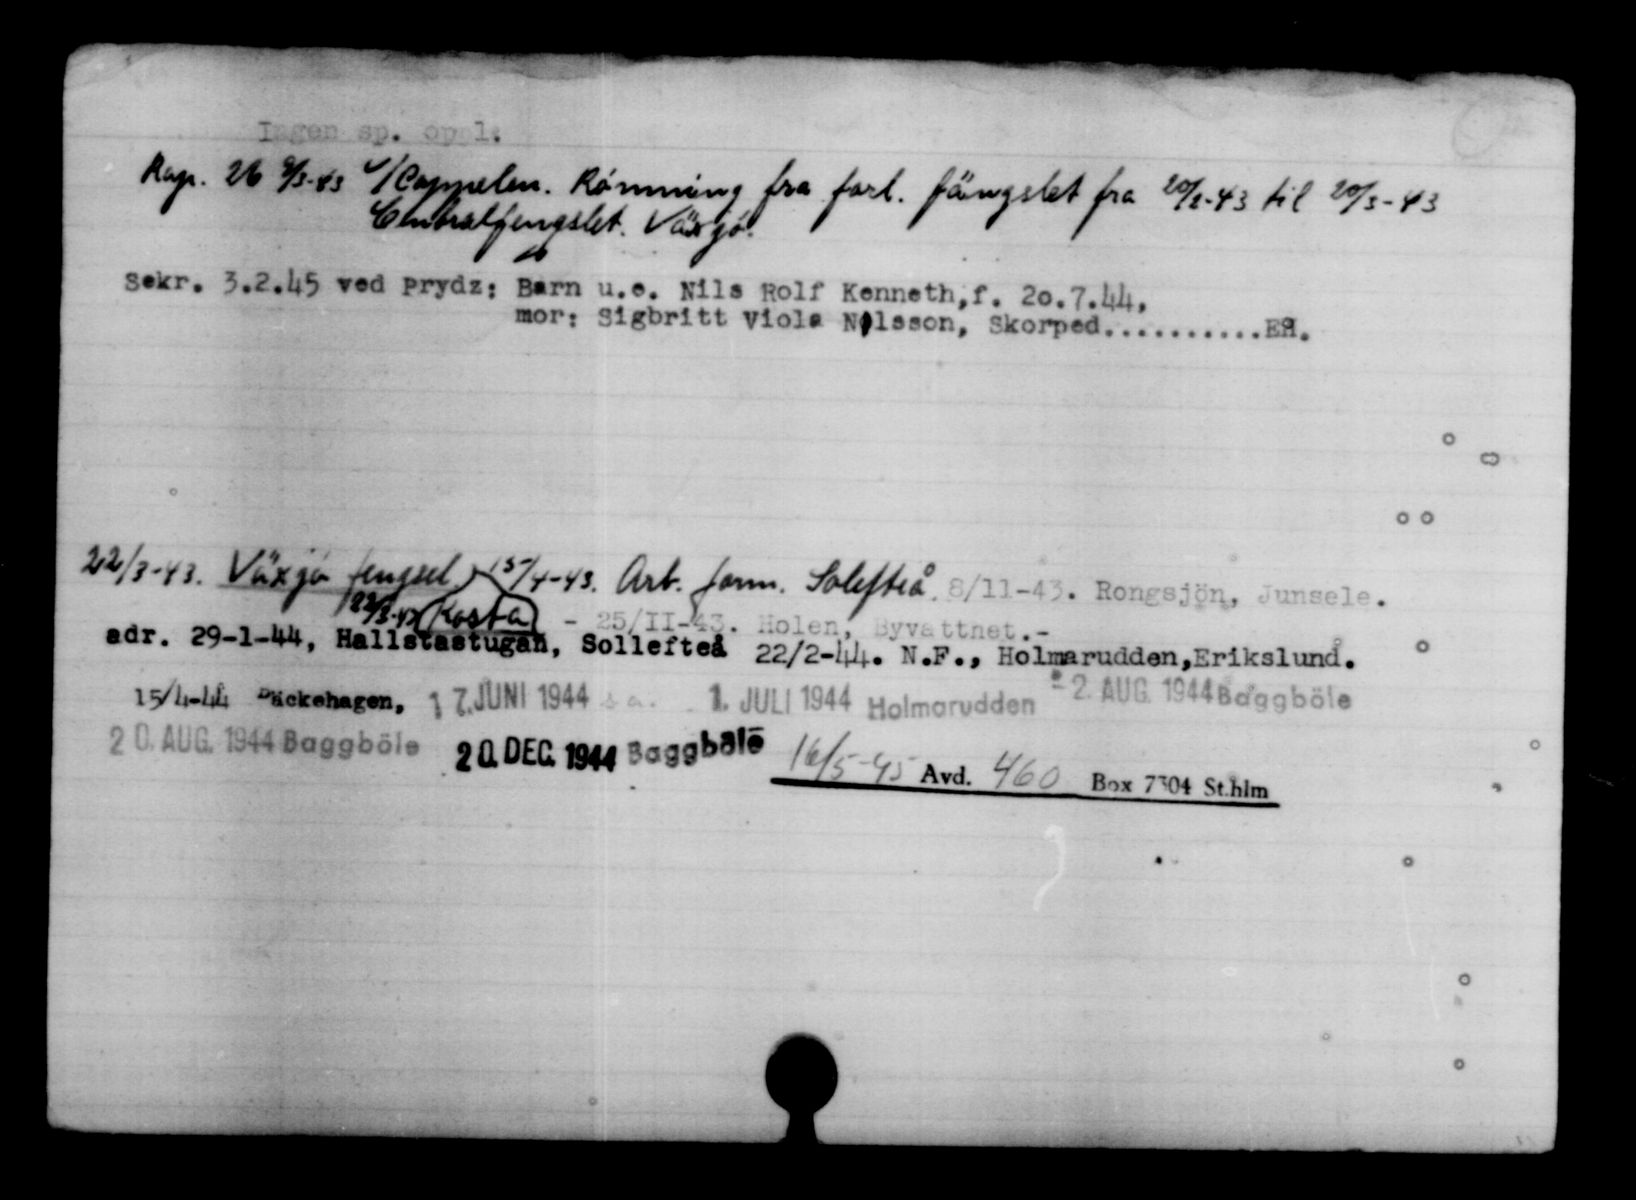 Ingen sp. oppl.
Rap. 26 9/3-43 v/Cappelen. Rømning fra forl. fängslet fra 20/2-43 til 20/3-43
Centralfengslet. Växjö.
Sekr. 3.2.45 ved Prydz: Barn u.e. Nils Rolf Kenneth,f. 2o.7.44,
mor: Sigbritt Viola Nilsson, Skorped..........EH.
22/3-43. Växjö fengsel. 15/4-43. Arb. form. Solefteå. 8/11-43. Rongsjön, Junsele.
22/3-43 Kosta - 25/II-43. Holen, Byvattnet.-
adr. 29-1-44, Hallstastugan, Sollefteå 22/2-44. N.F., Holmarudden,Erikslund.
15/4-44 Backehagen, 17. JUNI 1944 s.a. 1. JULI 1944 Holmarudden -2. AUG. 1944 Baggböle
20. AUG. 1944 Baggböle 20. DEC. 1944 Baggböle 16/5-45 Avd. 460 Box 7304 St.hlm